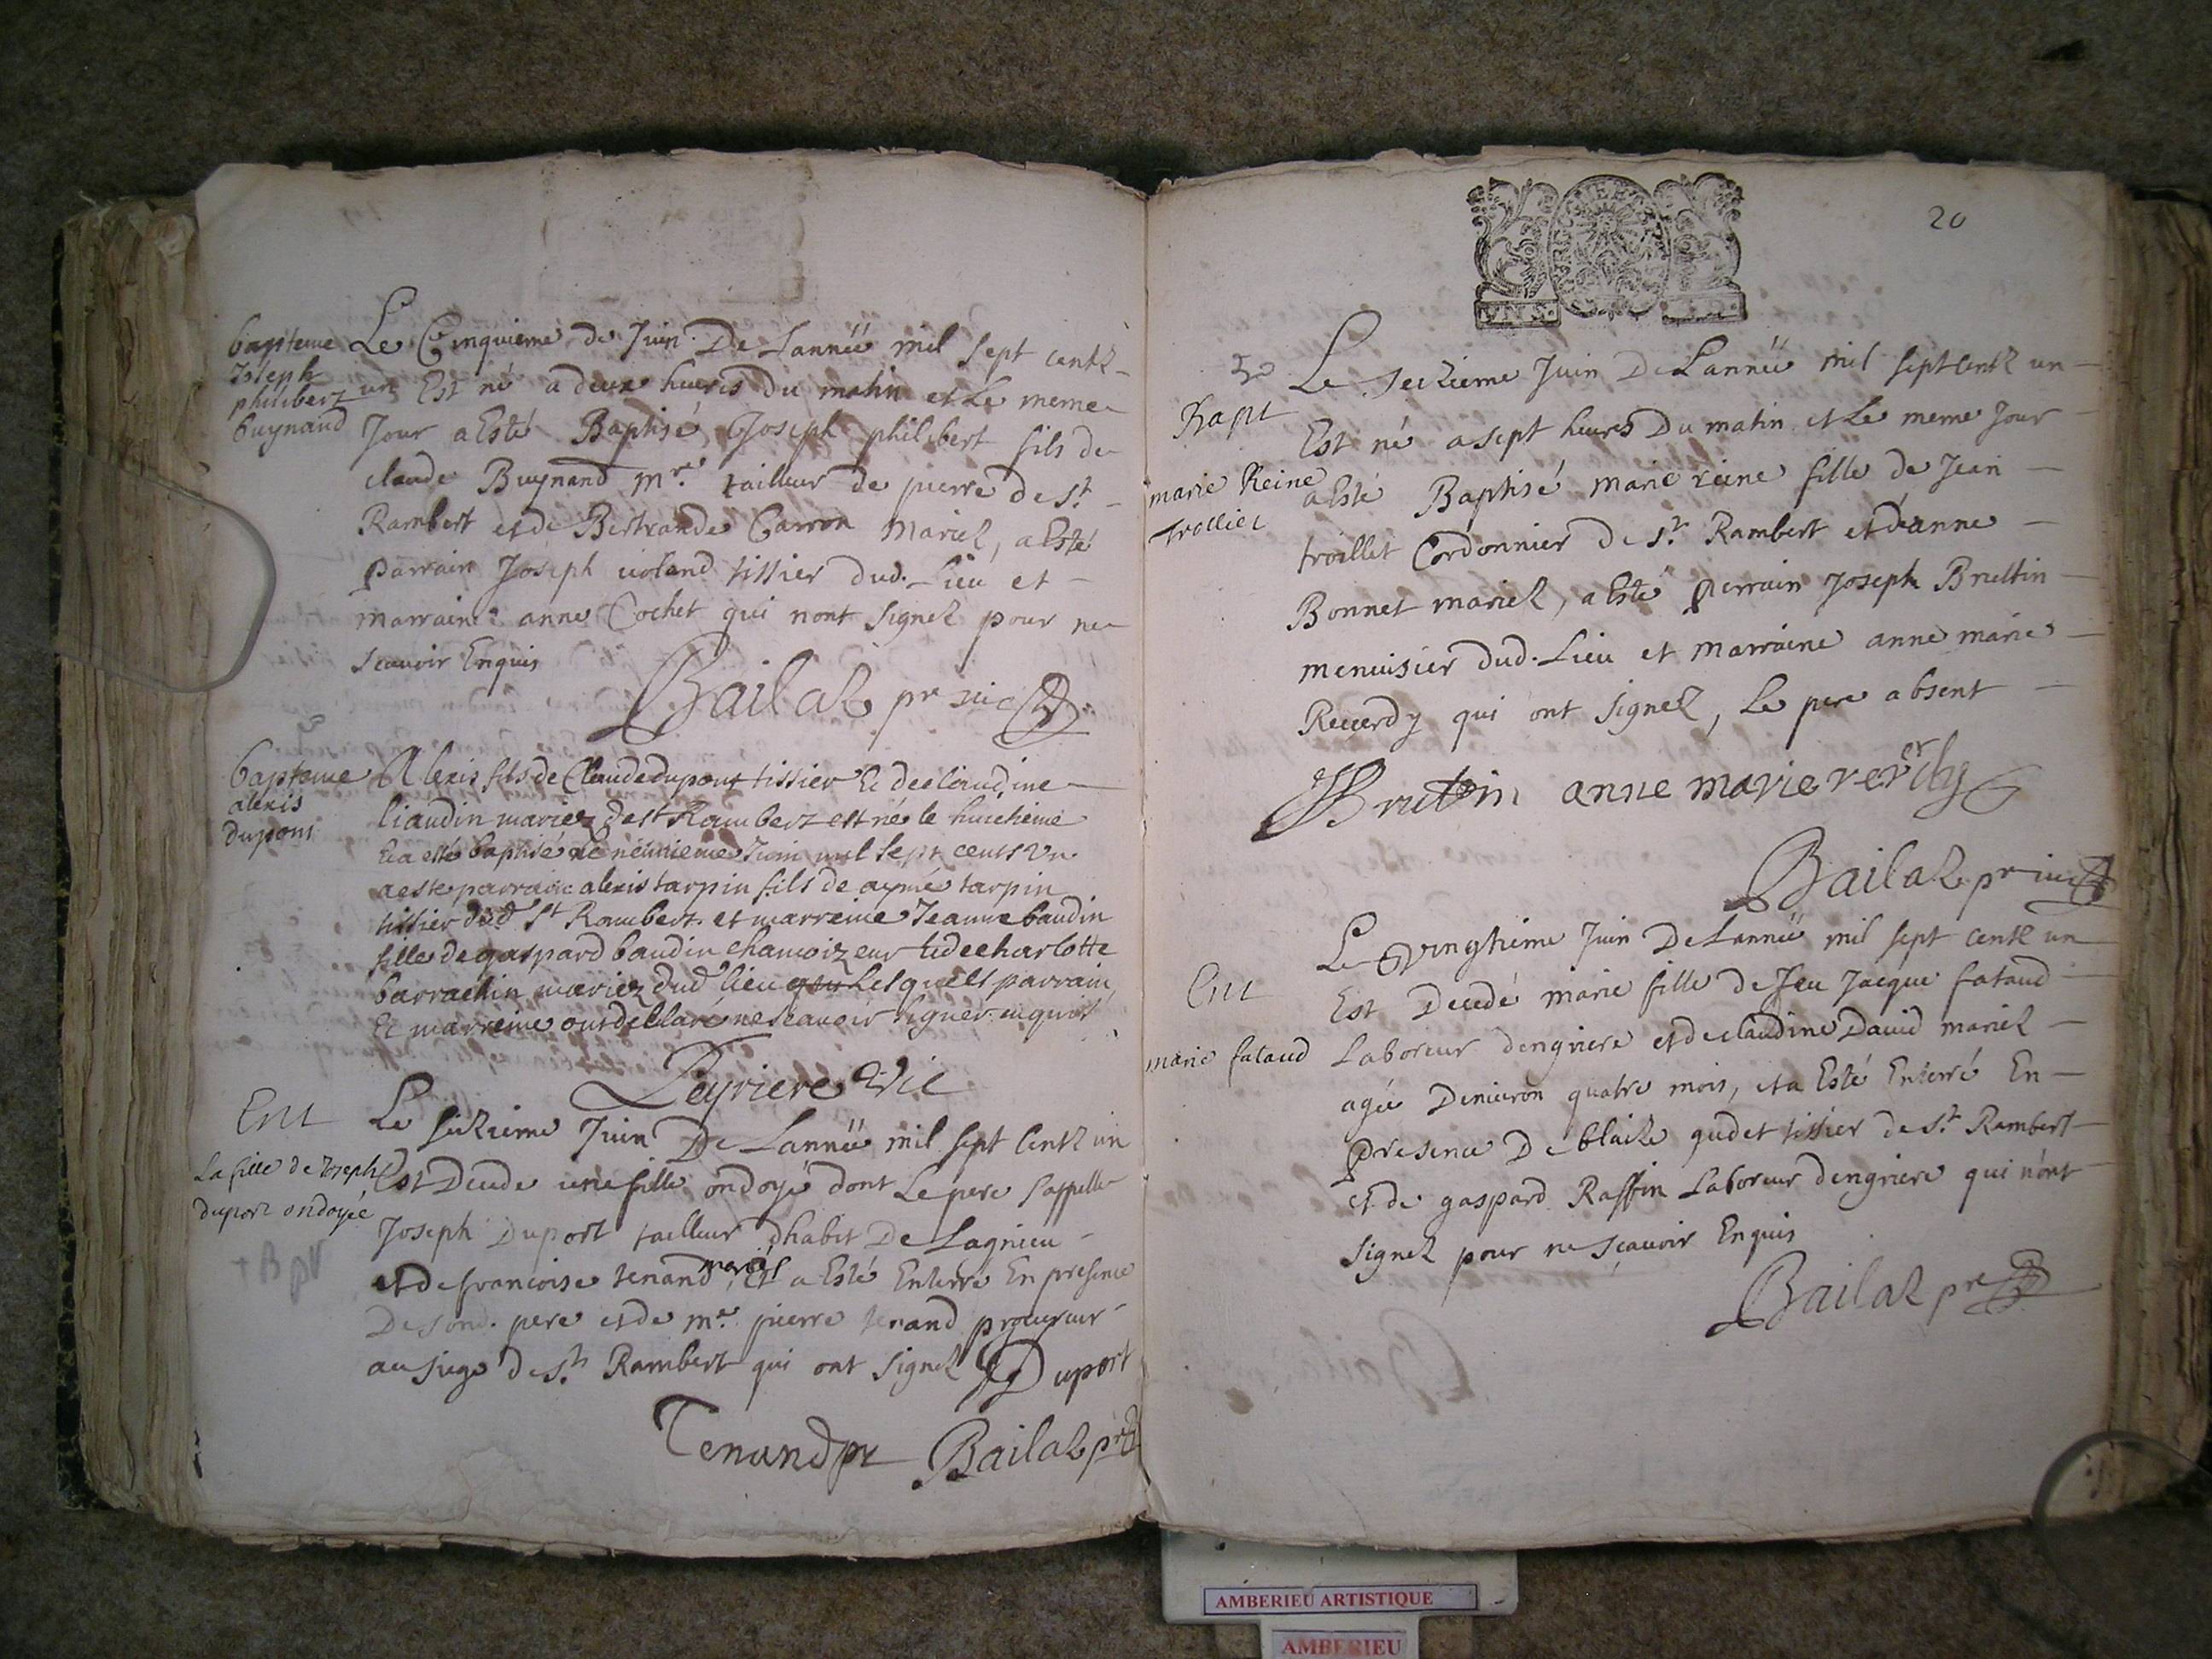 bapteme
Joseph
philibert
buynand
Le Cinquieme de Juin De Lannéé mil sept centz
un Est né a deux heures du matin et Le meme
Jour a Esté Baptisé Joseph philibert fils de
claude Buynand mre tailleur de pierre de st
Rambert et de Bertrande Carron Mariez, a Esté
parrain Joseph violand tissier dud. Lieu et
marraine anne Cochet qui nont signez pour ne
scavoir Enquis
Bailaz pr vic
bapteme
alexis
dupont
Alexis fils de Claude dupont tissier Et de claudine
liaudin mariez de st Rambert est né le huicheme
Et a esté baptisé le neuvieme Juin mil sept cents un
a este parrain alexis tarpin fils de aymé tarpin
tissier dud St Rambert et marreine Jeanne baudin
fille de gaspard baudin chamoizeur et de charlotte
barrachin mariez dud lieu lesquels parrain
Et marreine ont declaré ne scavoir signer enquis
Peyriere Vic
Ent
La fille de Joseph
duport ondoyée
Le seizieme Juin De Lannéé mil sept Centz un
Est Decede une fille ondoyé dont Le pere sappelle
Joseph Duport tailleur dhabit De Lagnieu
et de francoise tenand mariez, Et a Esté Enterré En presence
De sond. pere et de mre pierre tenand procureur
au siege de st Rambert qui ont signez Duport
Tenand pr Bailaz pr
20
Bapt
marie Reine
trollier
Le seizieme Juin De Lannéé mil sept Centz un
Est né a sept heures Du matin et Le meme Jour
a Esté Baptisé marie reine fille de Jean
troillet Cordonnier de st Rambert et de anne
Bonnet mariez, a Esté perrain Joseph Bruttin
menuisier dud. Lieu et marraine anne marie
Reverdy qui ont signez, Le pere absent
JBruttin anne marie reverdy
Bailaz pr vic
Ent
marie fataud
Le vingtieme Juin De Lannéé mil sept centz un
Est Decedé marie fille de feu Jacque fataud
Laboreur dengriere et de claudine David mariez
agée Denviron quatre mois, et a Esté Enterré En
presence De blaize gudet tissier de st Rambert
et de gaspard Raffin Laboreur dengriere qui n'ont
signez pour ne scavoir Enquis
Bailaz pr
AMBERIEU ARTISTIQUE
AMBERIEU